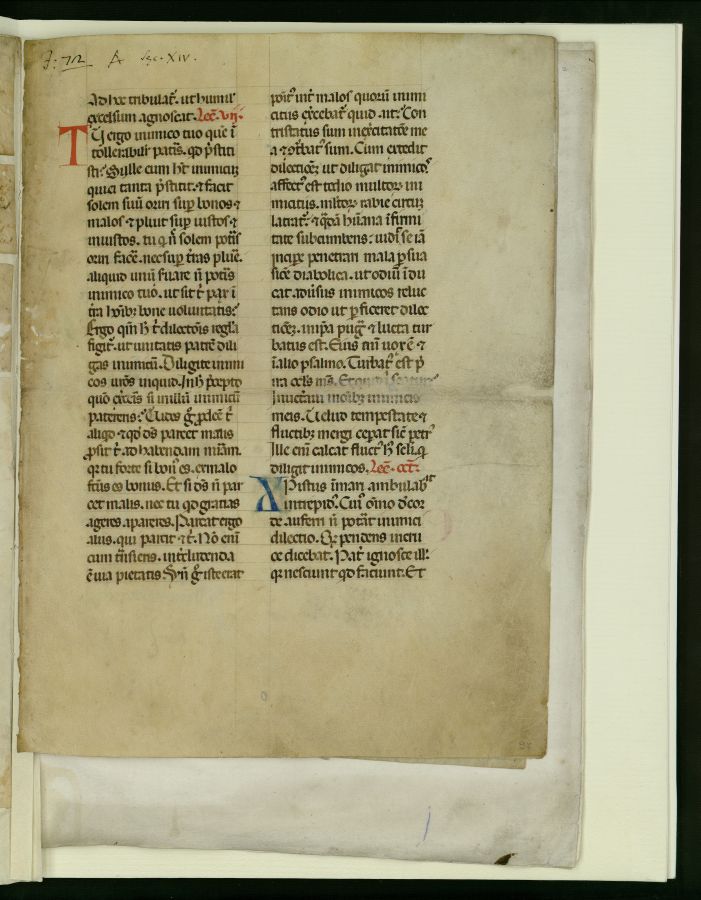 Ad hec tribulat̃. ut humil'
excelsum agnoscat. Lec̃. vij.
TU ergo inimico tuo que ĩ
tollerabilit̃ patĩs. qd p̃stiti
sti? Qui
qui ei tanta p̃stitit. ⁊ facit
solem suũ oriri sup̃ bonos ⁊
malos ⁊ pluit sup̃ iustos ⁊
iniustos. tu q̃ ñ solem potĩs
oriri facẽ. nec sup̃ tĩras pluẽ.
aliquid unũ s̃uare ñ potĩs
inimico tuo. ut sit t̃ pax ĩ
t̃ra hoĩb; bone uoluntatis?
Ergo qm̃ h̃ t̃ dilectõis regla
figit̃. ut imitatis patrẽ dili
gas inimicũ. Diligite inimi
cos ur̃os inquid. In h̃ p̃cepto
quõ exc̃ais si nullũ inimicũ
pateris? Uides g̃ p̃dee t̃
aliqd ⁊ qd ds̃ parcet malis
p̃sit t̃. ad habendam mĩam.
qr tu forte si boñ es. ex malo
fc̃us es bonus. Et si ds̃ ñ par
cet malis. nec tu qd gratias
ageres. apareres. Parcat ergo
aliis. qui parcit ⁊ t̃. Nõ eni
cum t̃nsieris. intercludenda
ẽ uia pietatis
põit̃ int̃ malos quorũ inimi
citiis exc̃ebat̃ quid ait. Con
tristatus sum in exc̃itatõe me
a ⁊ ↄt̃bat̃ sum. Cum extedit
dilectiõẽ; ut diligat inimic̃.
affect̃ est tedio multor; ini
micitiis. mltor; rabie circũ
latrãt̃. ⁊ q̃dã hũana ĩfirmi
tate subcumbens: uidĩ se iã
incipe penetrari mala p̃sua
siõe diabolica. ut odiũ ĩdu
cat. aduisus inimicos reluc
tans odio ut p̃ficeret dilec
tiõẽ; in ip̃a pug̃ ⁊ lucta tur
batus est. Eius eni uox ẽ ⁊
ĩ alio psalmo. Turbat̃ est p̃
ira ocls̃ ms̃.
Inueterãui
meis. Uelud tempestate ⁊
fluctib; mergi ceperat siẽ petr̃
Ille eni calcat fluct̃ h̃ scli. q
diligit inimicos. Lec̃. oct̃.
XPistus ĩ mari ambulab̃
intrepid̃. Cui̊ oĩno d̃ cor
de auferri ñ pot̃ãt inimici
dilectio. Qr pendens in cru
ce dicebat. Pat̃ ignosce ill̃.
qr nesciunt qd faciunt. Et